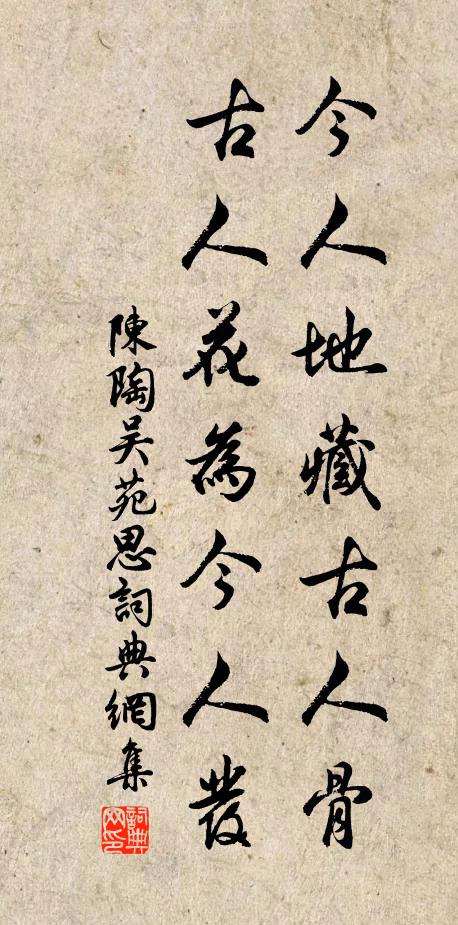 今人地藏古人骨
古人花為今人發
陳陶吴苑思詞典網集
詞典网印